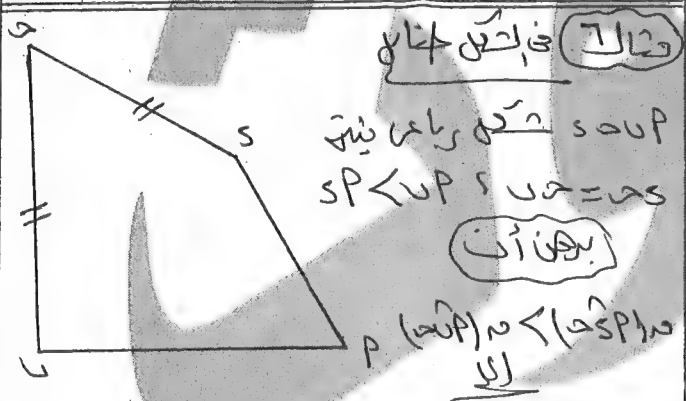 مثال ٦ في الشكل المقابل
أ ب حـ د شكل رباعي فيه
د حـ = حـ ب ، أ ب > أ د
برهن أن
ق(أ د̂ حـ) > ق(أ ب̂ حـ)
الحل
حـ
د
ب
أ